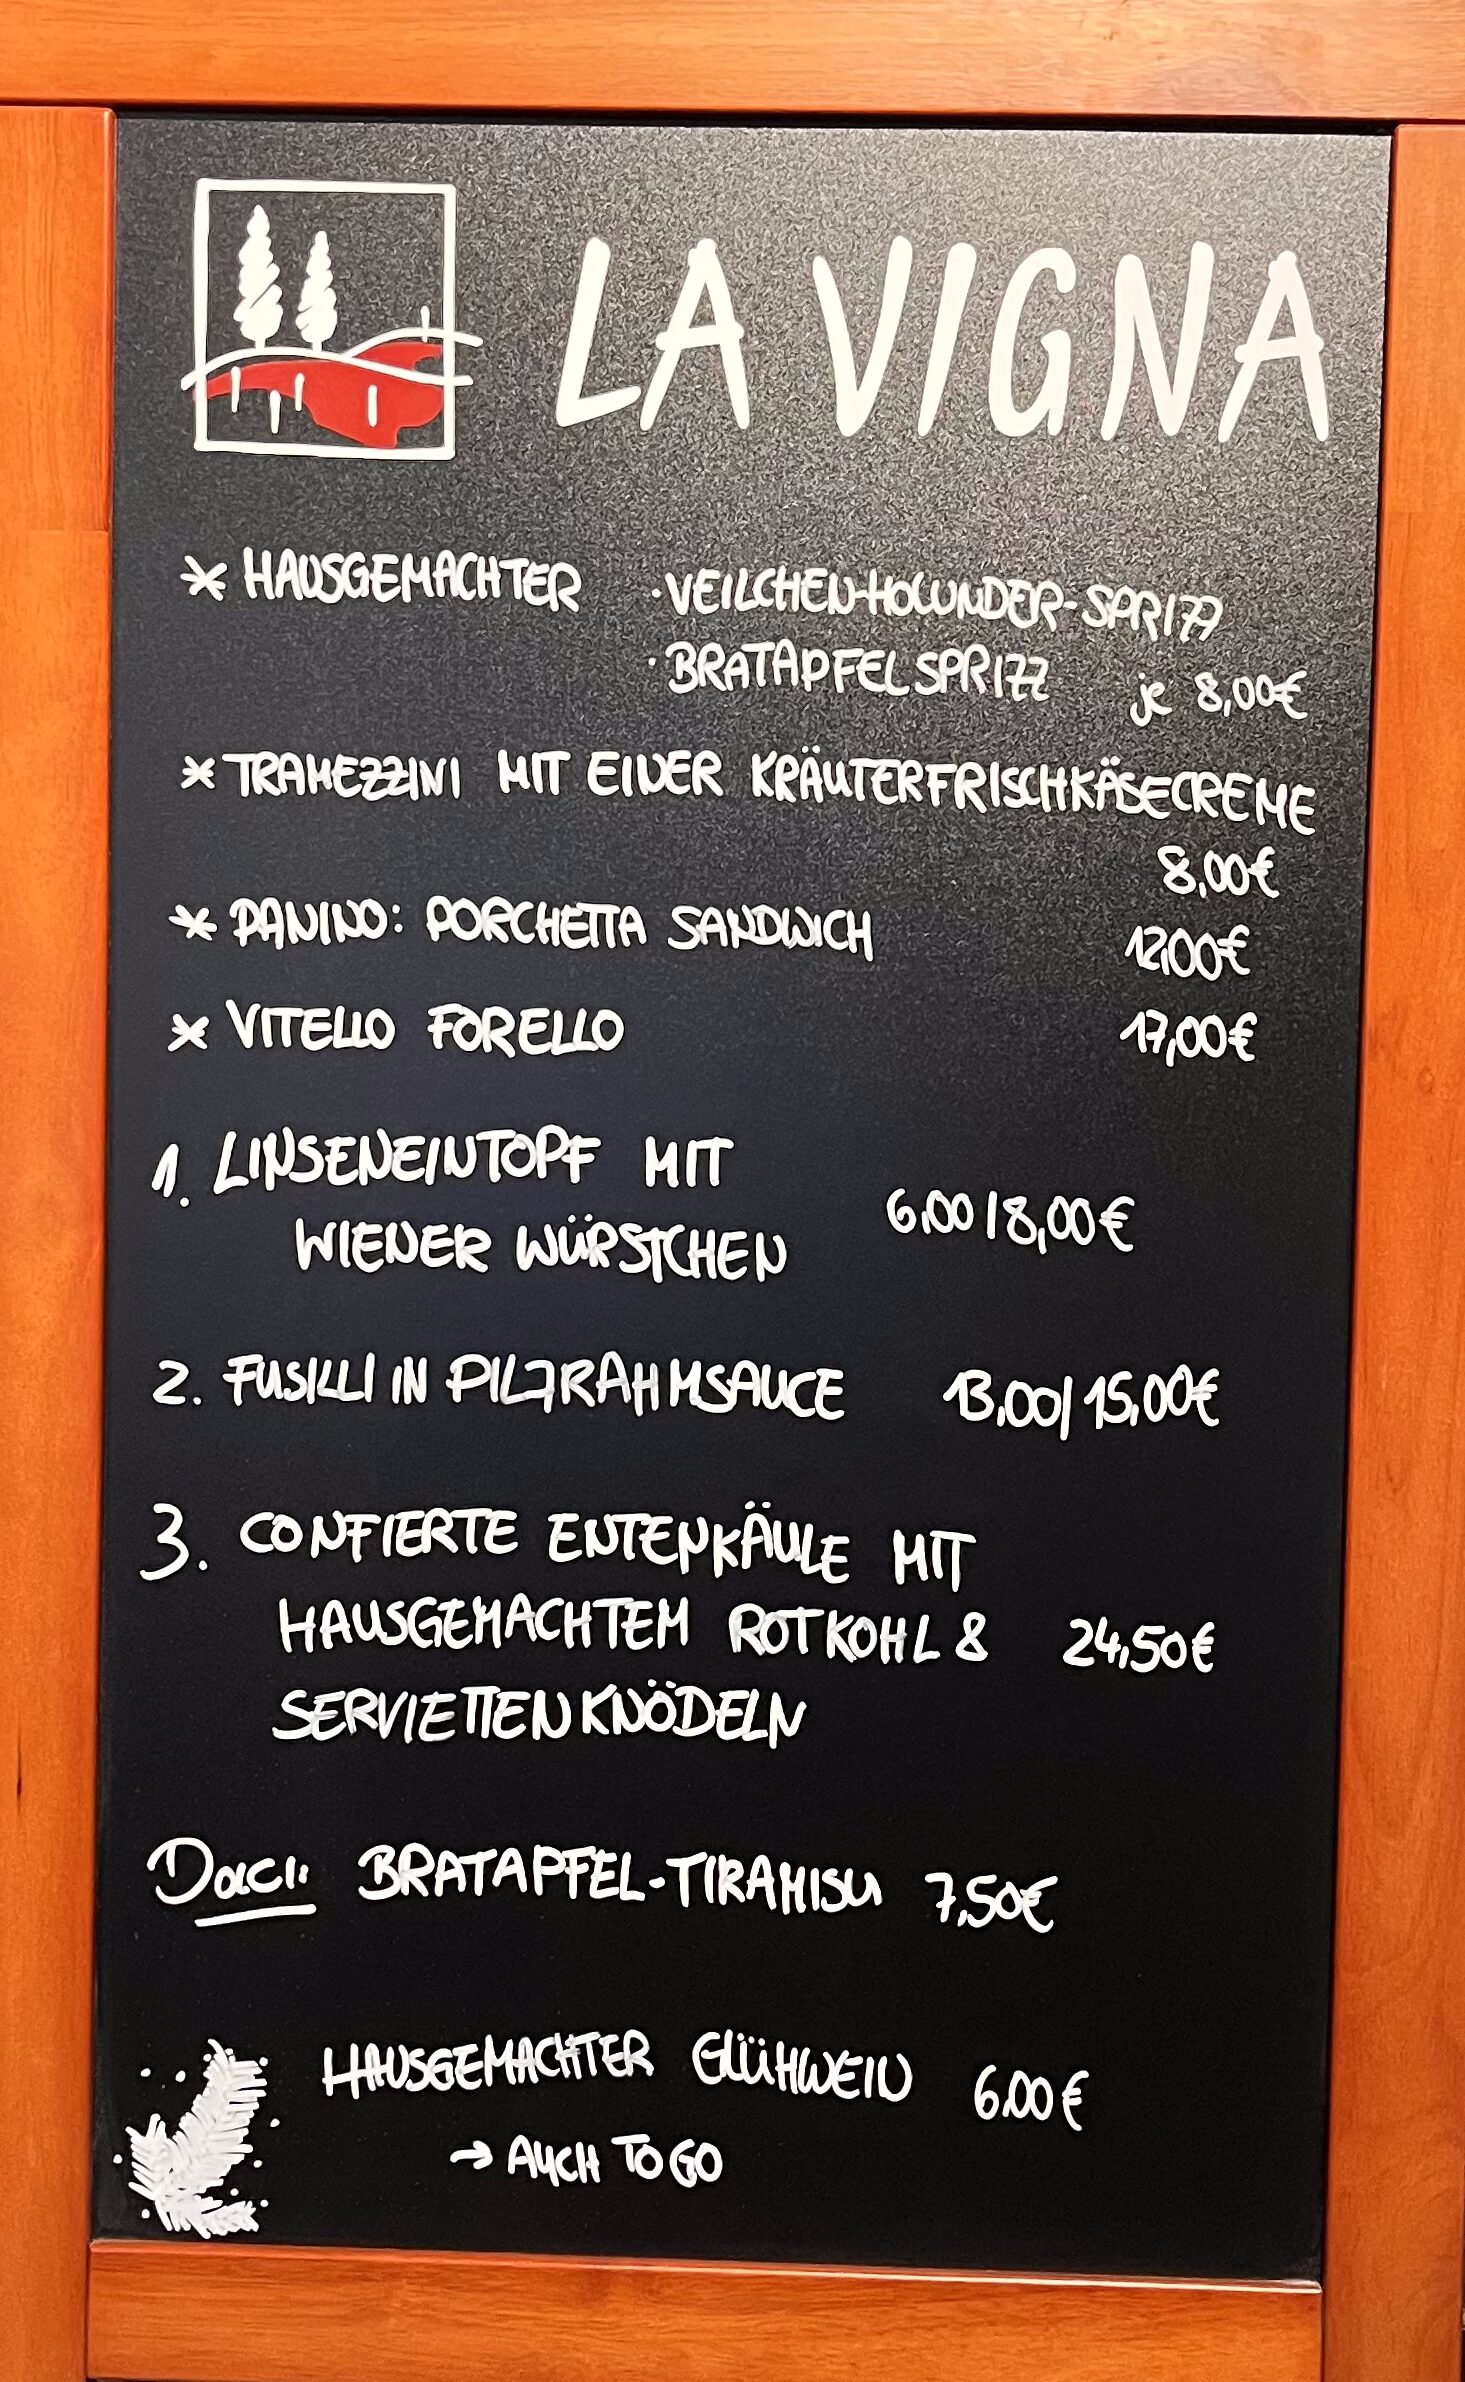 LA VIGNA
* HAUSGEMACHTER · VEILCHEN-HOLUNDER-SPRIZZ
· BRATAPFELSPRIZZ je 8,00€
* TRAMEZZINI MIT EINER KRÄUTERFRISCHKÄSECREME
8,00€
* PANINO: PORCHETTA SANDWICH 12,00€
* VITELLO FORELLO 17,00€
1. LINSENEINTOPF MIT
WIENER WÜRSTCHEN 6,00/8,00€
2. FUSILLI IN PILZRAHMSAUCE 13,00/15,00€
3. CONFIERTE ENTENKÄULE MIT
HAUSGEMACHTEM ROTKOHL & 24,50€
SERVIETTENKNÖDELN
Daci: BRATAPFEL-TIRAMISU 7,50€
HAUSGEMACHTER GLÜHWEIN 6.00€
→ AUCH TO GO